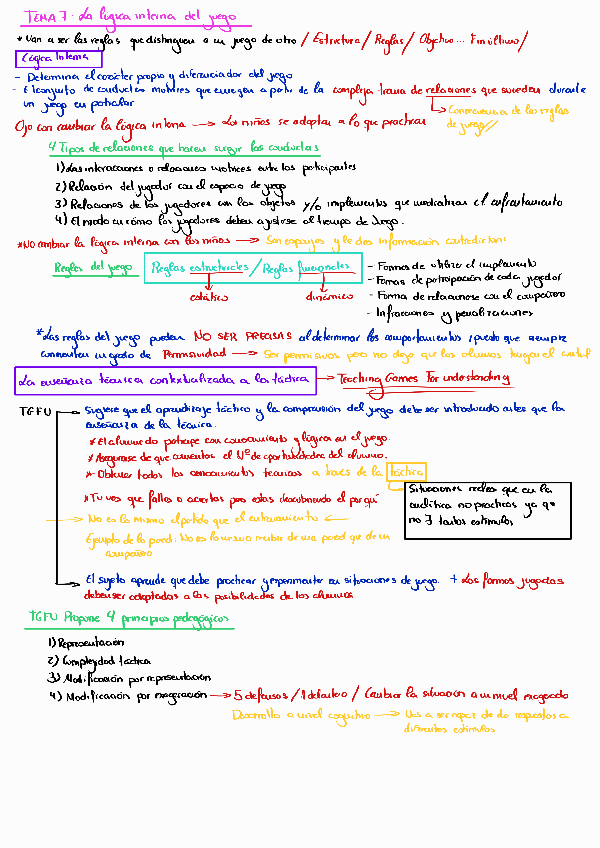 TEMA 7: La lógica interna del juego
* Van a ser las reglas que distinguen a un juego de otro / Estructura / Reglas / Objetivo... Fin último /
Lógica Interna
- Determina el carácter propio y diferenciador del juego
- El conjunto de conductas motrices que emergen a partir de la compleja trama de relaciones que suceden durante
un juego en particular
Consecuencia de las reglas
de juego
Ojo con cambiar la lógica interna → Los niños se adaptan a lo que practican
4 Tipos de relaciones que hacen surgir las conductas
1) Las interacciones o relaciones motrices entre los participantes
2) Relación del jugador con el espacio de juego
3) Relaciones de los jugadores con los objetos y/o implementos que mediatizan el enfrentamiento
4) El modo en cómo los jugadores deben ajustarse al tiempo de Juego.
*NO cambiar la lógica interna con los niños → Son esponjas y le das información contradictoria
Reglas del juego
Reglas estructurales / Reglas funcionales
estático
dinámico
- Formas de utilizar el implemento
- Formas de participación de cada jugador
- Forma de relacionarse con el compañero
- Infracciones y penalizaciones
*Las reglas del juego pueden NO SER PRECISAS al determinar los comportamientos, puesto que siempre
consienten un grado de Permisividad → Ser permisivos pero no dejar que los alumnos tengan el control
La enseñanza técnica contextualizada a la táctica → Teaching Games For understanding
TGFU
Sugiere que el aprendizaje táctico y la comprensión del juego debe ser introducido antes que la
enseñanza de la técnica.
* El alumnado participe con conocimiento y lógica en el juego.
* Asegurarse de que aumentes el Nº de oportunidades del alumno.
* Obtener todos los conocimientos técnicos a través de la táctica
* Tu ves que fallas o aciertas pero estas descubriendo el por qué
Situaciones reales que en la
analítica no practicas ya que
no 7 tantos estímulos
→ No es lo mismo el partido que el entrenamiento ←
Ejemplo de la pared: No es lo mismo recibir de una pared que de un
compañero
El sujeto aprende que debe practicar y experimentar en situaciones de juego. + Las formas jugadas
deben ser adaptadas a las posibilidades de los alumnos
TGFU Propone 4 principios pedagógicos
1) Representación
2) Complejidad táctica
3) Modificación por representación
4) Modificación por exageración → 5 defensas / 1 defensivo / Cambiar la situación a un nivel exagerado
Desarrollo a nivel cognitivo → Vas a ser capaz de dar respuestas a
diferentes estímulos